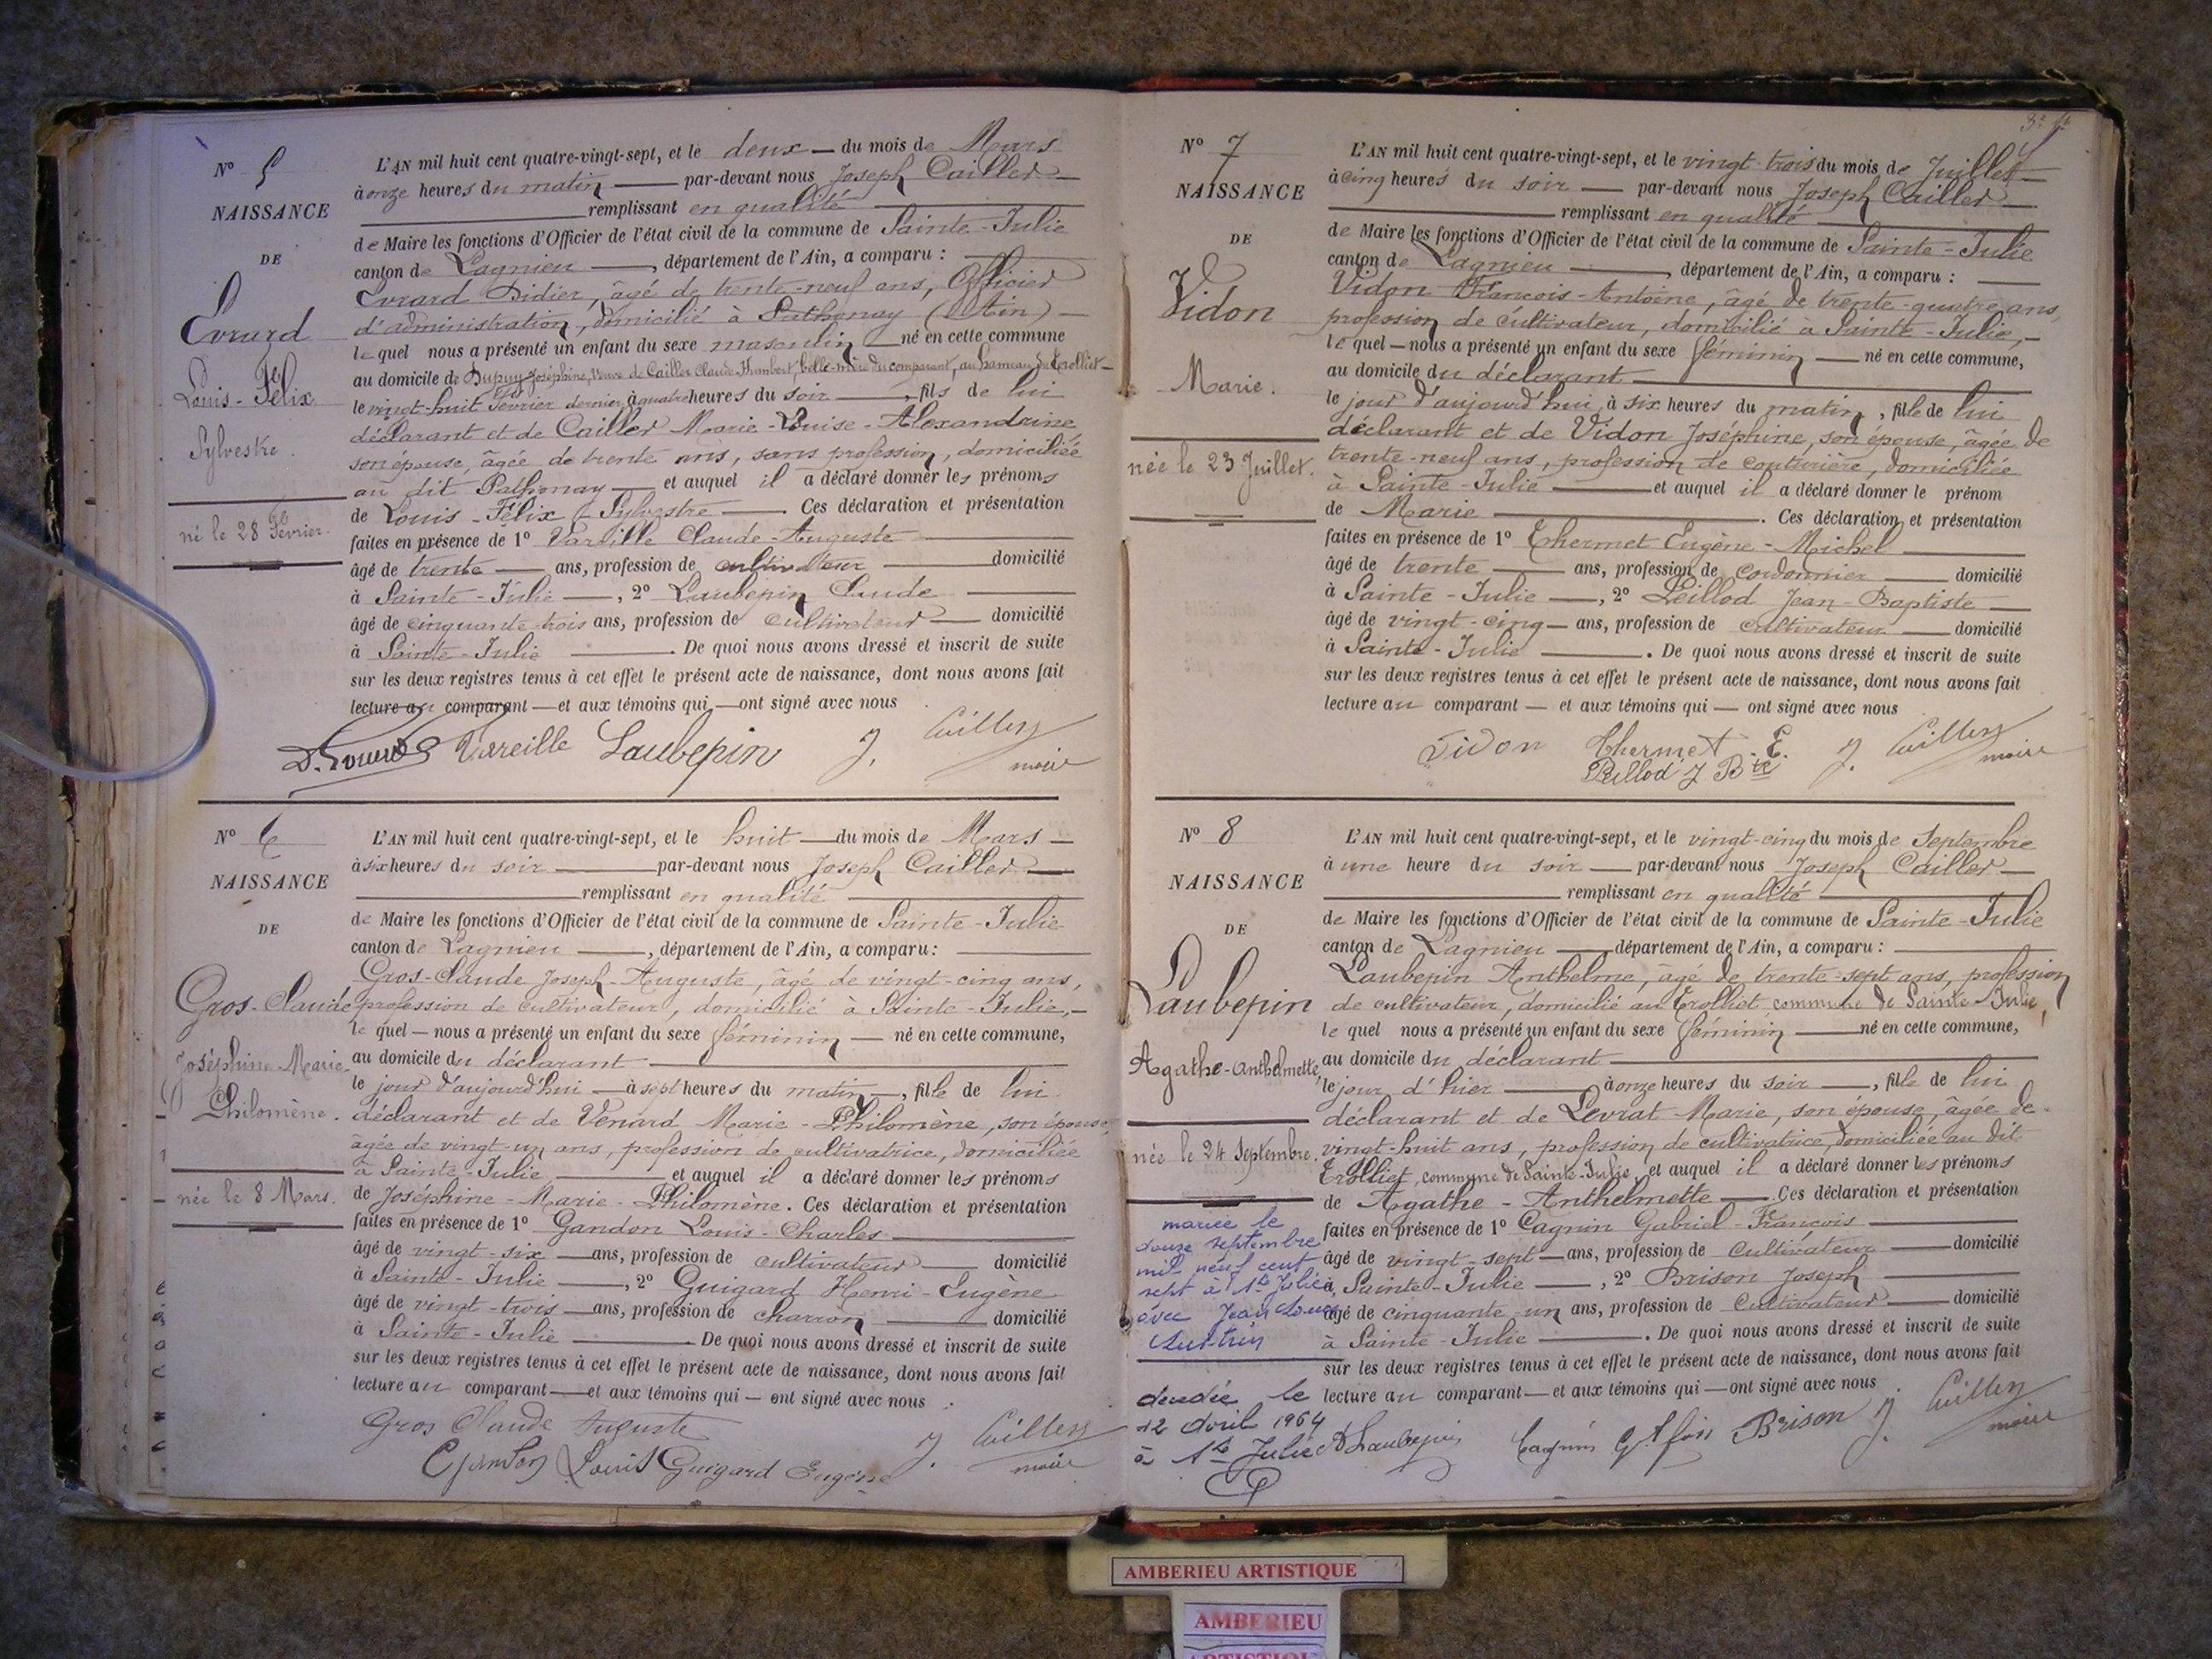 N° 5
NAISSANCE
DE
Evrard
Louis-Félix
Sylvestre.
né le 28 Février.
L'AN mil huit cent quatre-vingt-sept, et le deux — du mois de Mars
à onze heures du matin — par-devant nous Joseph Cailler —
remplissant en qualité
de Maire les fonctions d'Officier de l'état civil de la commune de Sainte-Julie
canton de Lagnieu —, département de l'Ain, a comparu :
Evrard Didier, âgé de trente-neuf ans, Officier
d'administration, domicilié à Sathonay (Ain) —
le quel nous a présenté un enfant du sexe masculin — né en cette commune
au domicile de Dupuy Joséphine, veuve de Cailler Claude Humbert, belle-mère du comparant, au hameau du Trolliet —
le vingt-huit Février dernier, à quatre heures du soir —, fils de lui
déclarant et de Cailler Marie-Louise-Alexandrine
son épouse, âgée de trente ans, sans profession, domiciliée
au dit Sathonay — et auquel il a déclaré donner les prénoms
de Louis-Félix-Sylvestre —. Ces déclaration et présentation
faites en présence de 1° Vareille Claude-Auguste
âgé de trente — ans, profession de cultivateur — domicilié
à Sainte-Julie —, 2° Laubepin Claude
âgé de cinquante-trois ans, profession de cultivateur — domicilié
à Sainte-Julie —. De quoi nous avons dressé et inscrit de suite
sur les deux registres tenus à cet effet le présent acte de naissance, dont nous avons fait
lecture au comparant — et aux témoins qui — ont signé avec nous
Vareille Laubepin J. Cailler
maire
N° 6
NAISSANCE
DE
Gros-Claude
Joséphine-Marie-
Philomène.
née le 8 Mars.
L'AN mil huit cent quatre-vingt-sept, et le huit — du mois de Mars —
à six heures du soir — par-devant nous Joseph Cailler —
remplissant en qualité
de Maire les fonctions d'Officier de l'état civil de la commune de Sainte-Julie
canton de Lagnieu —, département de l'Ain, a comparu :
Gros-Claude Joseph-Auguste, âgé de vingt-cinq ans,
profession de cultivateur, domicilié à Sainte-Julie, —
le quel — nous a présenté un enfant du sexe féminin — né en cette commune,
au domicile du déclarant
le jour d'aujourd'hui — à sept heures du matin —, fille de lui
déclarant et de Venard Marie-Philomène, son épouse,
âgée de vingt-un ans, profession de cultivatrice, domiciliée
à Sainte-Julie — et auquel il a déclaré donner les prénoms
de Joséphine-Marie-Philomène. Ces déclaration et présentation
faites en présence de 1° Gandon Louis-Charles
âgé de vingt-six — ans, profession de cultivateur — domicilié
à Sainte-Julie —, 2° Guigard Henri-Eugène
âgé de vingt-trois — ans, profession de charron — domicilié
à Sainte-Julie —. De quoi nous avons dressé et inscrit de suite
sur les deux registres tenus à cet effet le présent acte de naissance, dont nous avons fait
lecture au comparant — et aux témoins qui — ont signé avec nous
Gros Claude Auguste J. Cailler
Louis Guigard Eugène maire
N° 7
NAISSANCE
DE
Vidon
Marie.
née le 23 Juillet.
L'AN mil huit cent quatre-vingt-sept, et le vingt-trois du mois de Juillet —
à cinq heures du soir — par-devant nous Joseph Cailler —
remplissant en qualité
de Maire les fonctions d'Officier de l'état civil de la commune de Sainte-Julie
canton de Lagnieu —, département de l'Ain, a comparu :
Vidon François-Antoine, âgé de trente-quatre ans,
profession de cultivateur, domicilié à Sainte-Julie, —
le quel — nous a présenté un enfant du sexe féminin — né en cette commune,
au domicile du déclarant
le jour d'aujourd'hui, à six heures du matin, fille de lui
déclarant et de Vidon Joséphine, son épouse, âgée de
trente-neuf ans, profession de couturière, domiciliée
à Sainte-Julie — et auquel il a déclaré donner le prénom
de Marie —. Ces déclaration et présentation
faites en présence de 1° Thermet Eugène-Michel
âgé de trente — ans, profession de cordonnier — domicilié
à Sainte-Julie —, 2° Peillod Jean-Baptiste —
âgé de vingt-cinq — ans, profession de cultivateur — domicilié
à Sainte-Julie —. De quoi nous avons dressé et inscrit de suite
sur les deux registres tenus à cet effet le présent acte de naissance, dont nous avons fait
lecture au comparant — et aux témoins qui — ont signé avec nous
Vidon Thermet E. J. Cailler
Peillod J Bte maire
N° 8
NAISSANCE
DE
Laubepin
Agathe-Anthelmette,
née le 24 Septembre.
mariée le
douze septembre
mil neuf cent
sept à Ste Julie
avec Jean
décédée le
12 Avril 1964
à Ste Julie
L'AN mil huit cent quatre-vingt-sept, et le vingt-cinq du mois de Septembre
à une heure du soir — par-devant nous Joseph Cailler —
remplissant en qualité
de Maire les fonctions d'Officier de l'état civil de la commune de Sainte-Julie
canton de Lagnieu — département de l'Ain, a comparu :
Laubepin Anthelme, âgé de trente-sept ans, profession
de cultivateur, domicilié au Trolliet, commune de Sainte-Julie,
le quel nous a présenté un enfant du sexe féminin — né en cette commune,
au domicile du déclarant
le jour d'hier — à onze heures du soir —, fille de lui
déclarant et de Levrat Marie, son épouse, âgée de
vingt-huit ans, profession de cultivatrice, domiciliée au dit
Trolliet, commune de Sainte-Julie, et auquel il a déclaré donner les prénoms
de Agathe-Anthelmette —. Ces déclaration et présentation
faites en présence de 1° Cagnin Gabriel-François
âgé de vingt-sept — ans, profession de cultivateur — domicilié
à Sainte-Julie —, 2° Brison Joseph
âgé de cinquante-un ans, profession de cultivateur — domicilié
à Sainte-Julie —. De quoi nous avons dressé et inscrit de suite
sur les deux registres tenus à cet effet le présent acte de naissance, dont nous avons fait
lecture au comparant — et aux témoins qui — ont signé avec nous
A Laubepin Cagnin Brison J. Cailler
maire
AMBERIEU ARTISTIQUE
AMBERIEU
ARTISTIQUE